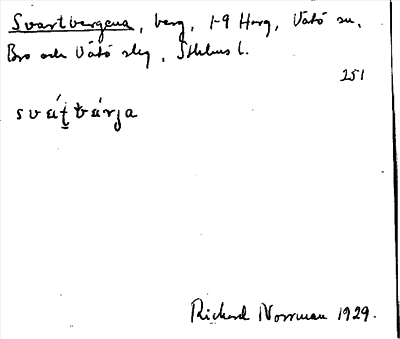 Svartbergena, berg, 1-9 Harg, Vätö sn,
Bro och Vätö slg, Sthlms l.
251
Rickard Norrman 1929.